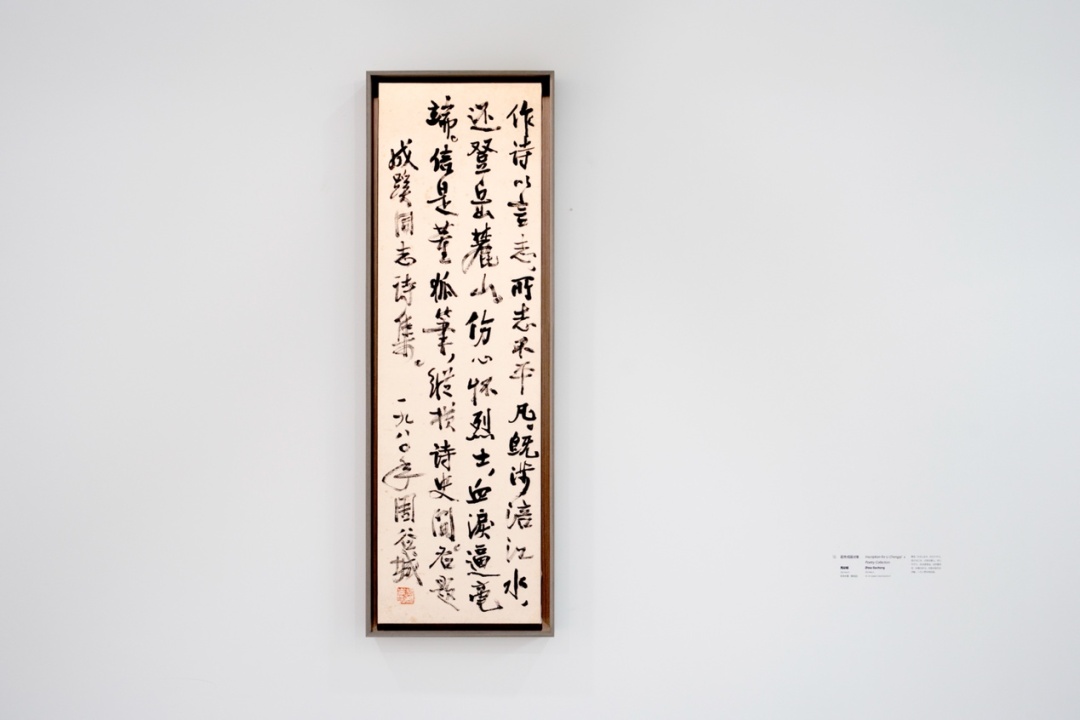 作诗以言志，所志不平凡。既涉涪江水，
还登岳麓山。伤心怀烈士，血淚逼毫
端。信是董狐筆，縱横诗史間。右题
成蹊同志诗集。一九八〇年周谷城